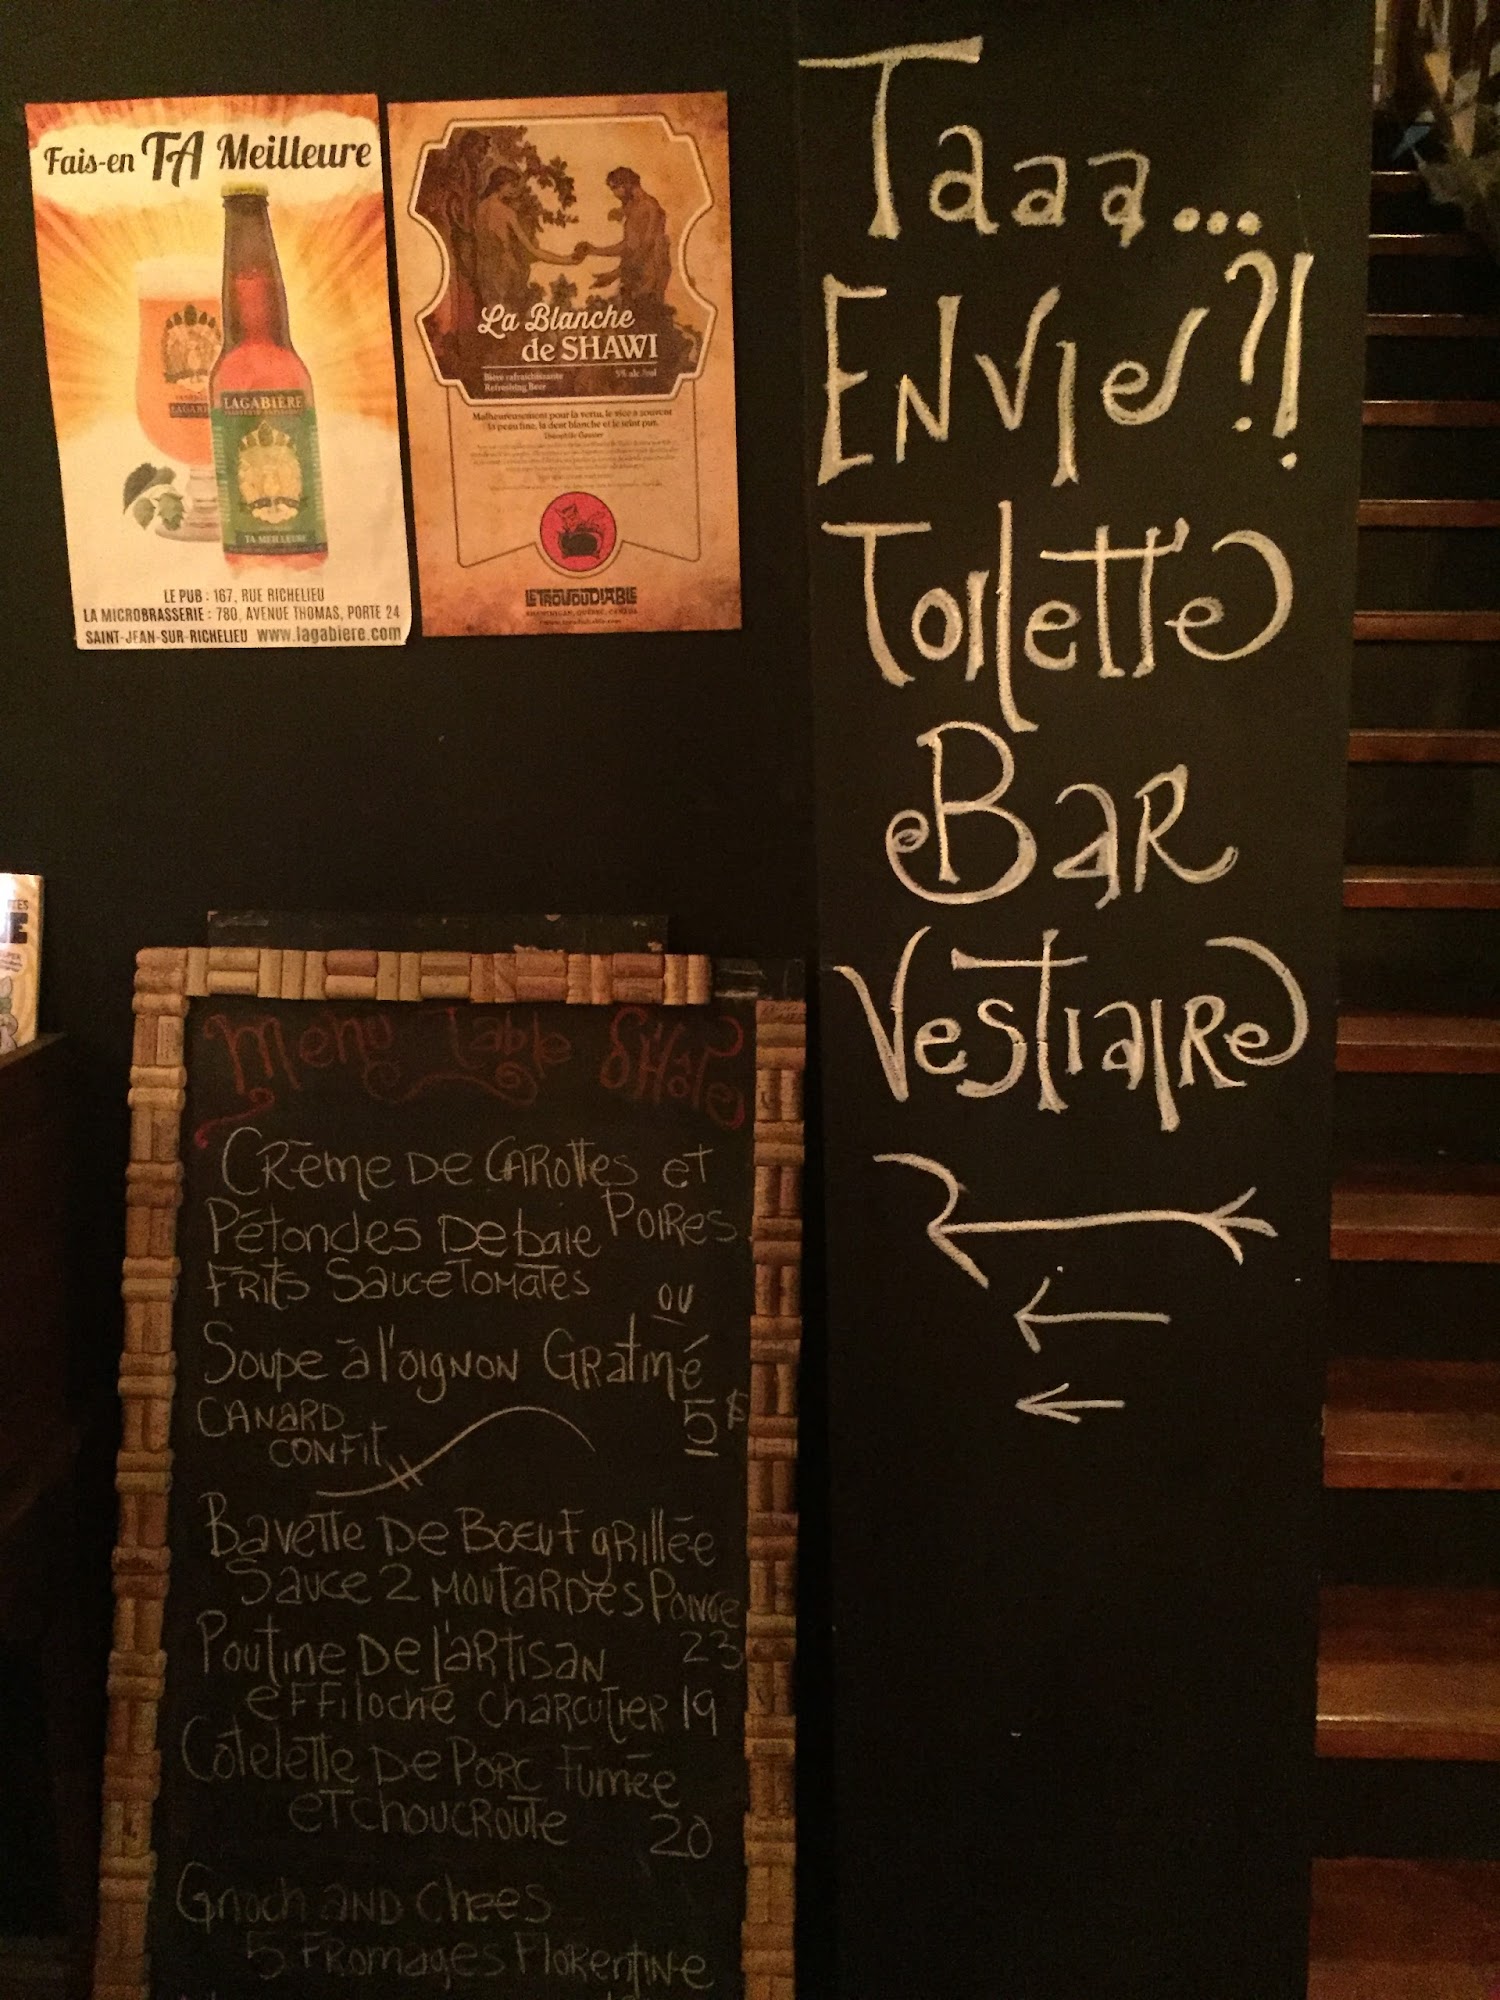 Fais-en TA Meilleure
LAGABIÈRE
TA MEILLEURE
LE PUB : 167, RUE RICHELIEU
LA MICROBRASSERIE : 780, AVENUE THOMAS, PORTE 24
SAINT-JEAN-SUR-RICHELIEU www.lagabiere.com
La Blanche
de SHAWI
Bière rafraîchissante
Refreshing Beer
5% alc./vol
Malheureusement pour la vertu, le vice a souvent
la peau fine, la dent blanche et le seint pur.
Théophile Gautier
LE TROU DU DIABLE
SHAWINIGAN, QUÉBEC, CANADA
Taaa...
ENVIE?!
Toilette
BAR
Vestiaire
Menu Table D'Hôte
Crème de carottes et
Poires
Pétoncles De baie
Frits Sauce Tomates
ou
Soupe à l'oignon Gratiné
Canard
confit
5$
Bavette De Bœuf grillée
Sauce 2 moutardes Poivre
23
Poutine De l'artisan
effiloché charcutier 19
Côtelette De Porc Fumée
et choucroute 20
Gnoch and chees
5 Fromages Florentine